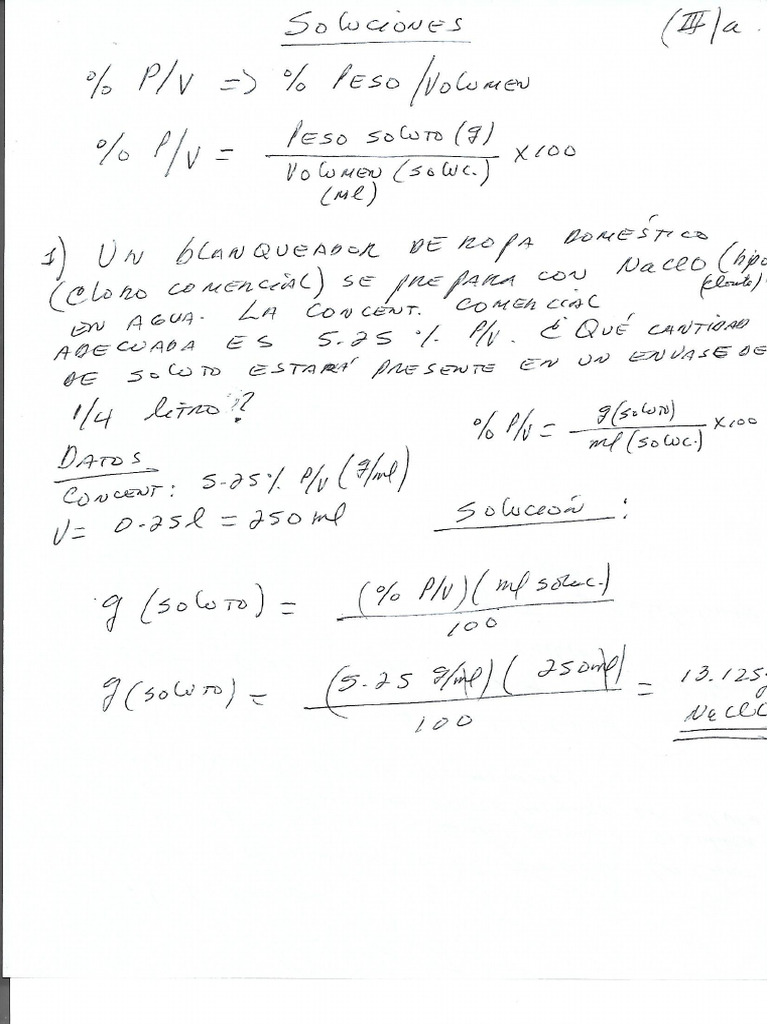 SOLUCIONES
(III)a.
% P/V => % PESO/VOLUMEN
% P/V = PESO SOLUTO (g) / VOLUMEN (SOLUC.) (ml) x100
1) UN BLANQUEADOR DE ROPA DOMÉSTICO
(CLORO COMERCIAL) SE PREPARA CON NaClO (hipo
clorito)
EN AGUA. LA CONCENT. COMERCIAL
ADECUADA ES 5.25 % P/V. ¿QUÉ CANTIDAD
DE SOLUTO ESTARÁ PRESENTE EN UN ENVASE DE
1/4 litro??
% P/V = g(soluto) / ml (soluc.) x100
DATOS
CONCENT: 5.25% P/V (g/ml)
V = 0.25l = 250 ml
SOLUCIÓN:
g (SOLUTO) = (% P/V)(ml soluc.) / 100
g (SOLUTO) = (5.25 g/ml)(250ml) / 100 = 13.125g
NaClO